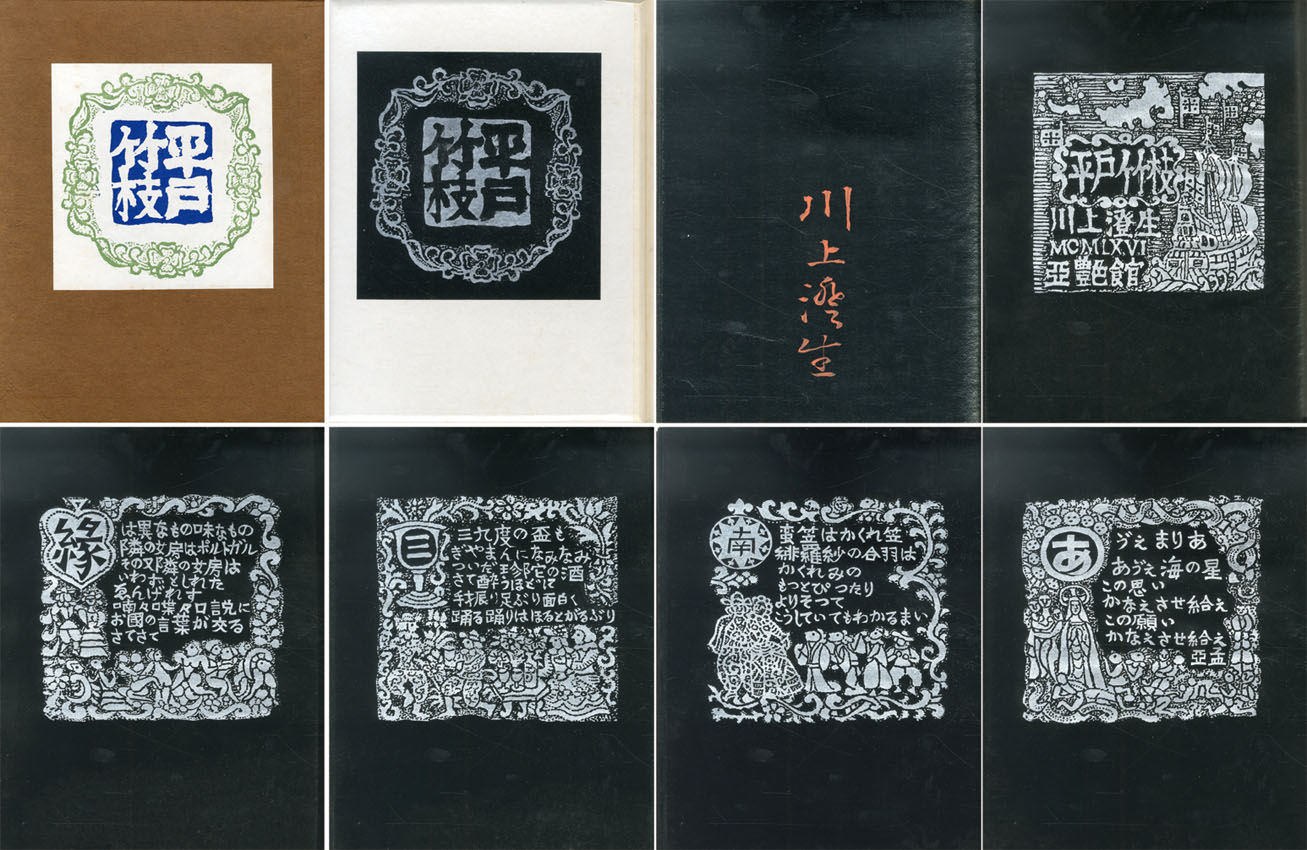 平戸
竹枝
平戸
竹枝
川上澄生
平戸竹枝
川上澄生
MCMLXVI
亞艶館
縁
は異なもの味なもの
隣の女房はポルトガル
その又隣の女房は
いわずとしれた
ゑんげれす
喃々喋々口説に
お國の言葉が交る
さてさて
三九度の盃も
ぎやまんになみなみ
ついだ珍陀の酒
さて酔うほどに
手振り足ぶり面白く
踊る踊りはほるとがるぶり
南
蛮笠はかくれ笠
緋羅紗の合羽は
かくれみの
もつとぴつたり
よりそつて
こうしていてもわかるまい
あ
ゔぇまりあ
あゔぇ海の星
この思い
かなえさせ給え
この願い
かなえさせ給え
亞孟